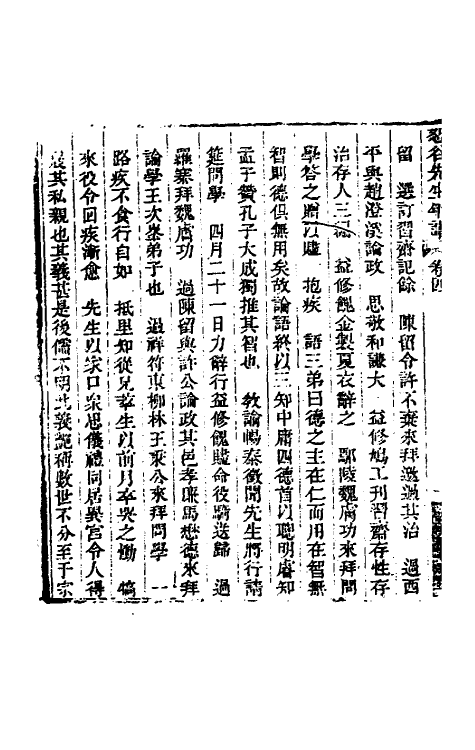 恕谷先生年譜 卷四
留　選訂習齋記餘　陳留令許不棄來拜邀過其治　過西
平與趙澄溪論政　思敬和謙大　益修鳩工刊習齋存性存
治存人三編　益修餽金製夏衣辭之　鄢陵魏膚功來拜問
學答之贈以賤　抱疾　語三弟曰德之主在仁而用在智無
智則德俱無用矣故論語終以三知中庸四德首以聰明睿知
孟子贊孔子大成獨推其智也　教諭暢泰徵聞先生將行請
筵問學　四月二十一日力辭行益修餽賤命役騎送歸　過
羅寨拜魏膚功　過陳留與許公論政其邑孝廉馬懋德來拜
論學王次峯弟子也　過祥符東柳林王乘公來拜問學　一
路疾不食行自如　抵里知從兄莘生以前月卒哭之慟　犒
來役令回疾漸愈　先生以家口衆思儀禮同居異宮令人得
各其私親也其義甚是後儒不明此義詭稱數世不分至于宗